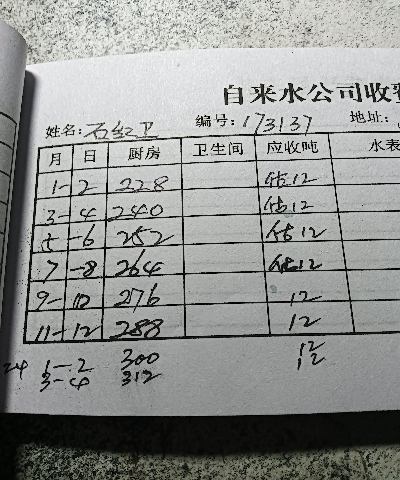 自来水公司收费
姓名: 石红卫 编号: 173137 地址:
月 日 厨房 卫生间 应收吨 水表
1-2 228 估12
3-4 240 估12
5-6 252 估12
7-8 264 估12
9-10 276 12
11-12 288 12
24 1-2 300 12
3-4 312 12